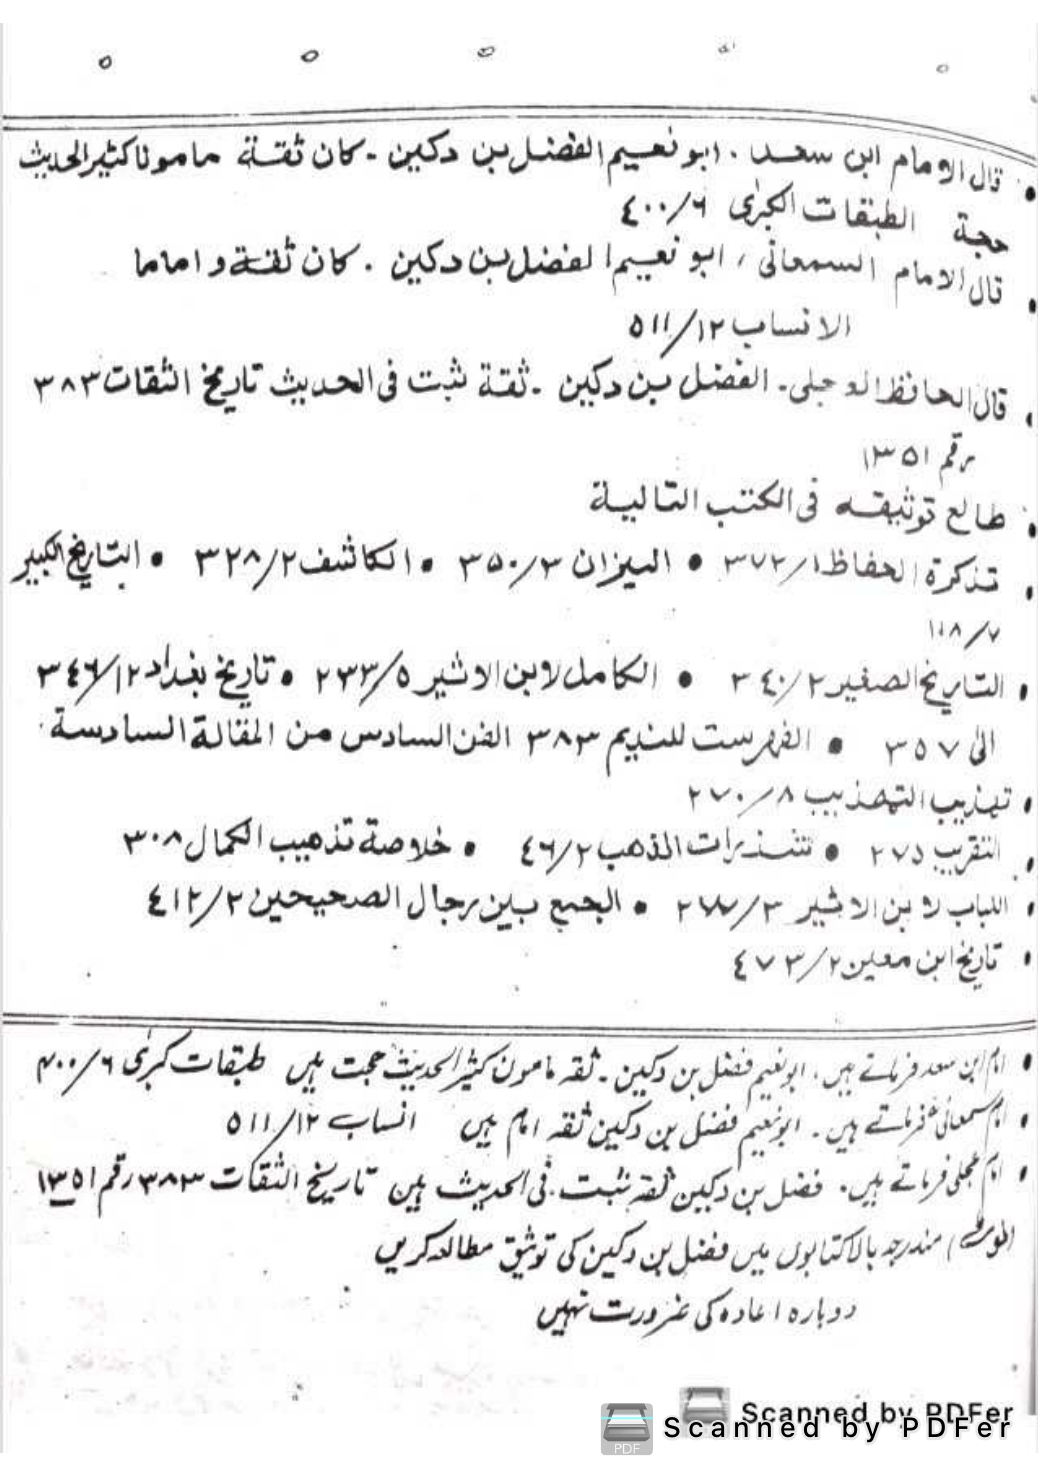 • قال الامام ابن سعد . ابو نعيم الفضل بن دكين - كان ثقة مامونا كثير الحديث
حجة الطبقات الكبرى ٤٠٠/٦
• قال الامام السمعانى ، ابو نعيم الفضل بن دكين . كان ثقة و اماما
الانساب ٥١١/١٢
• قال الحافظ العجلى - الفضل بن دكين - ثقة ثبت فى الحديث تاريخ الثقات ٣٨٣
رقم ١٣٥١
• طالع توثيقه فى الكتب التالية
• تذكرة الحفاظ ٣٧٢/١ • الميزان ٣٥٠/٣ • الكاشف ٣٢٨/٢ • التاريخ الكبير
١١٨/٧
• التاريخ الصغير ٣٤٠/٢ • الكامل لابن الاثير ٢٣٣/٥ • تاريخ بغداد ٣٤٦/١٢
الى ٣٥٧ • الفهرست للنديم ٣٨٣ الفن السادس من المقالة السادسة
• تهذيب التهذيب ٢٧٠/٨
• التقريب ٢٧٥ • شذرات الذهب ٤٦/٢ • خلاصة تذهيب الكمال ٣٠٨
• اللباب لابن الاثير • الجمع بين رجال الصحيحين ٤١٢/٢
• تاريخ ابن معين ٤٧٣/٢
• امام ابن سعد فرماتے ہیں . ابو نعیم فضل بن دکین - ثقہ مامون کثیر الحدیث حجت ہیں طبقات کبریٰ ۴۰۰/۶
• امام سمعانی فرماتے ہیں . ابو نعیم فضل بن دکین ثقہ امام ہیں انساب ۵۱۱/۱۲
• امام عجلی فرماتے ہیں . فضل بن دکین ثقہ ثبت فی الحدیث ہیں تاریخ الثقات ۳۸۳ رقم ۱۳۵۱
مندرجہ بالا کتابوں میں فضل بن دکین کی توثیق مطالعہ کریں
دوبارہ اعادہ کی ضرورت نہیں
Scanned by PDFer
Scanned by PDFer
PDF